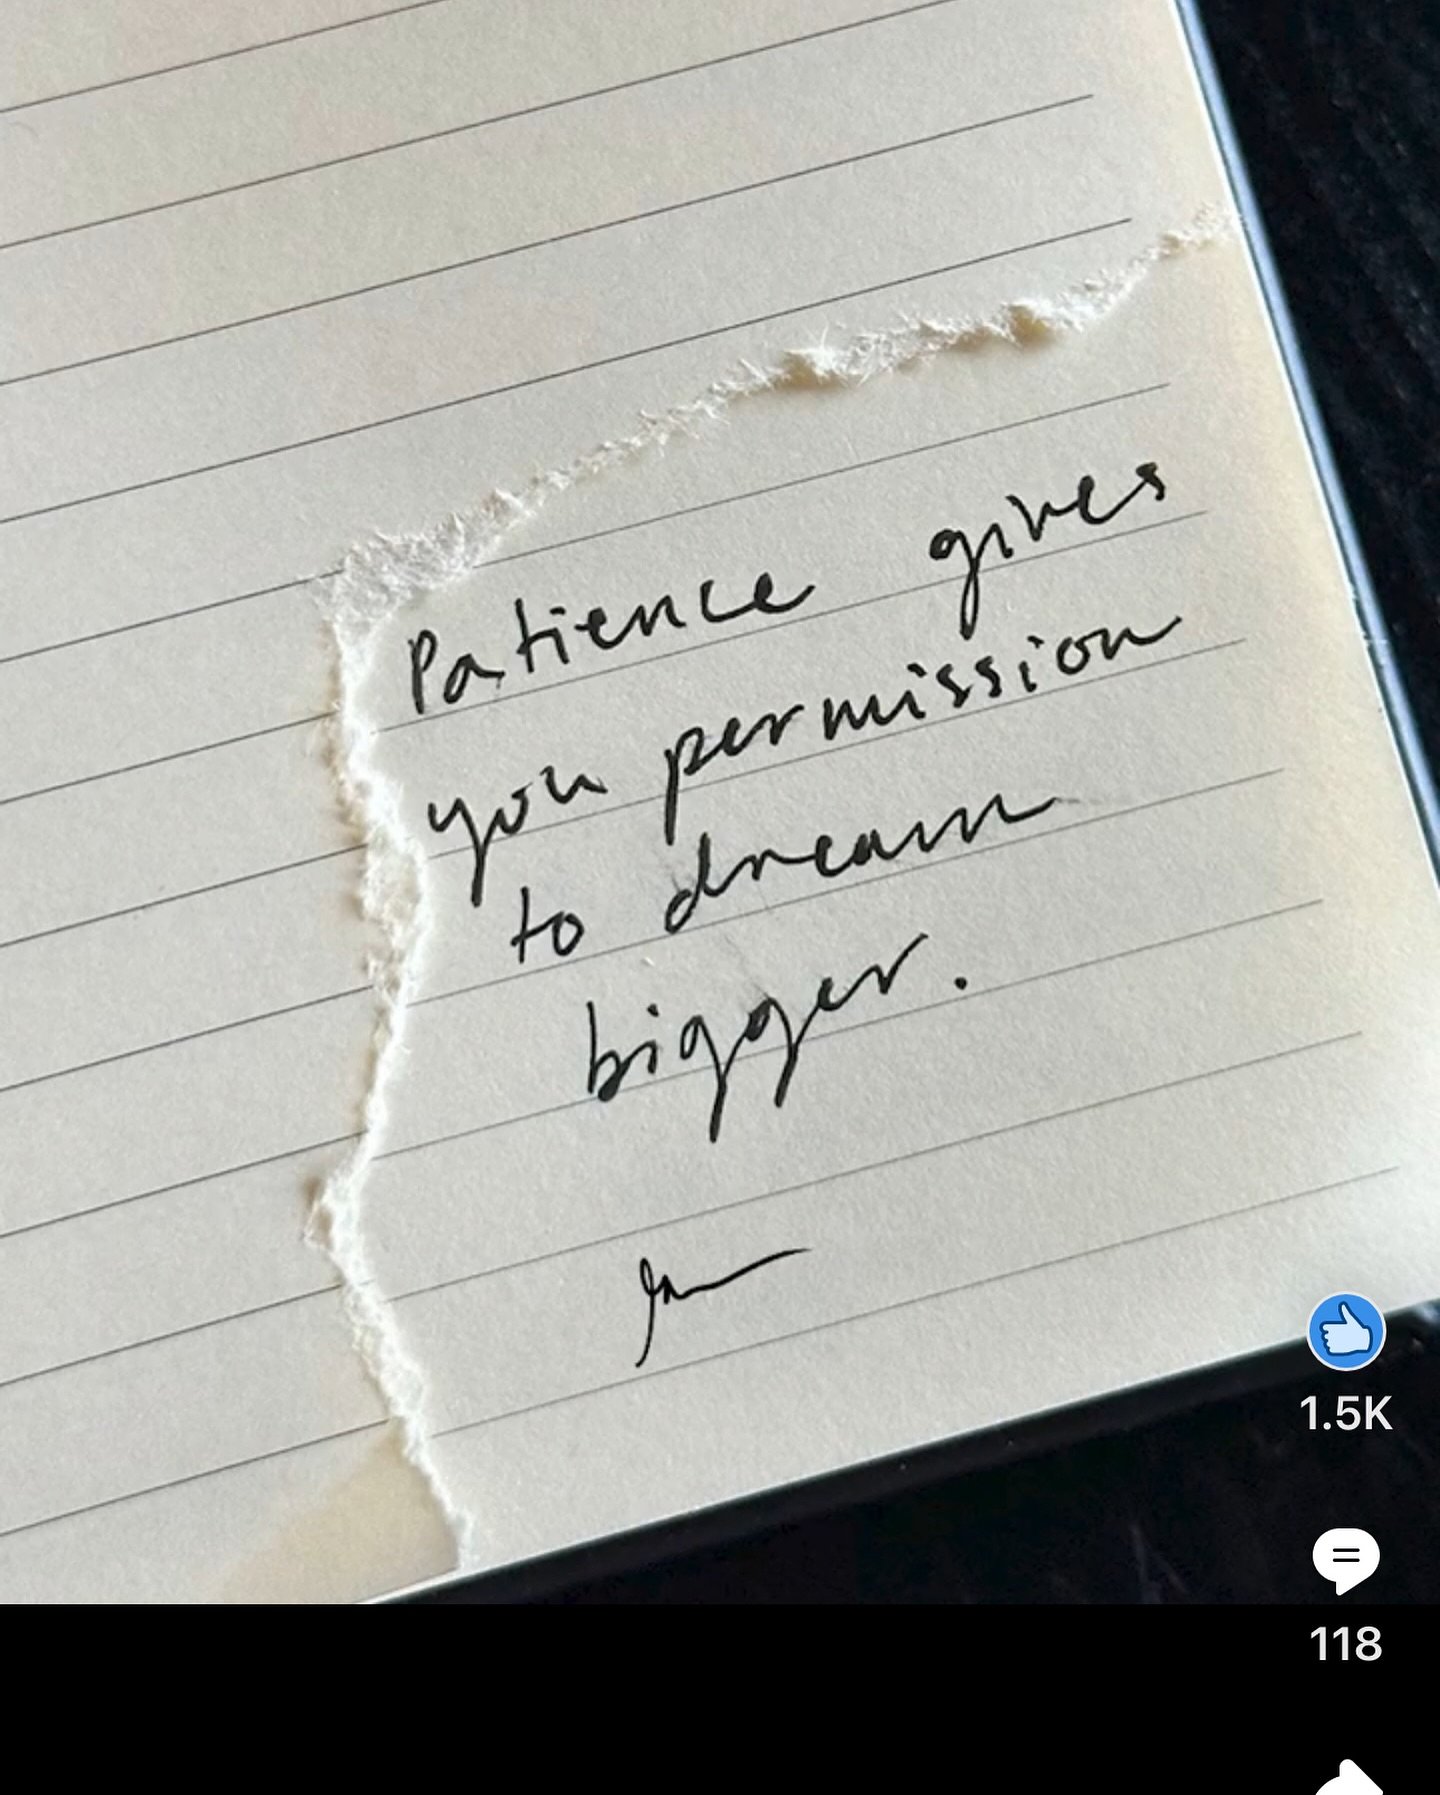 Patience gives
you permission
to dream
bigger.
1.5K
118